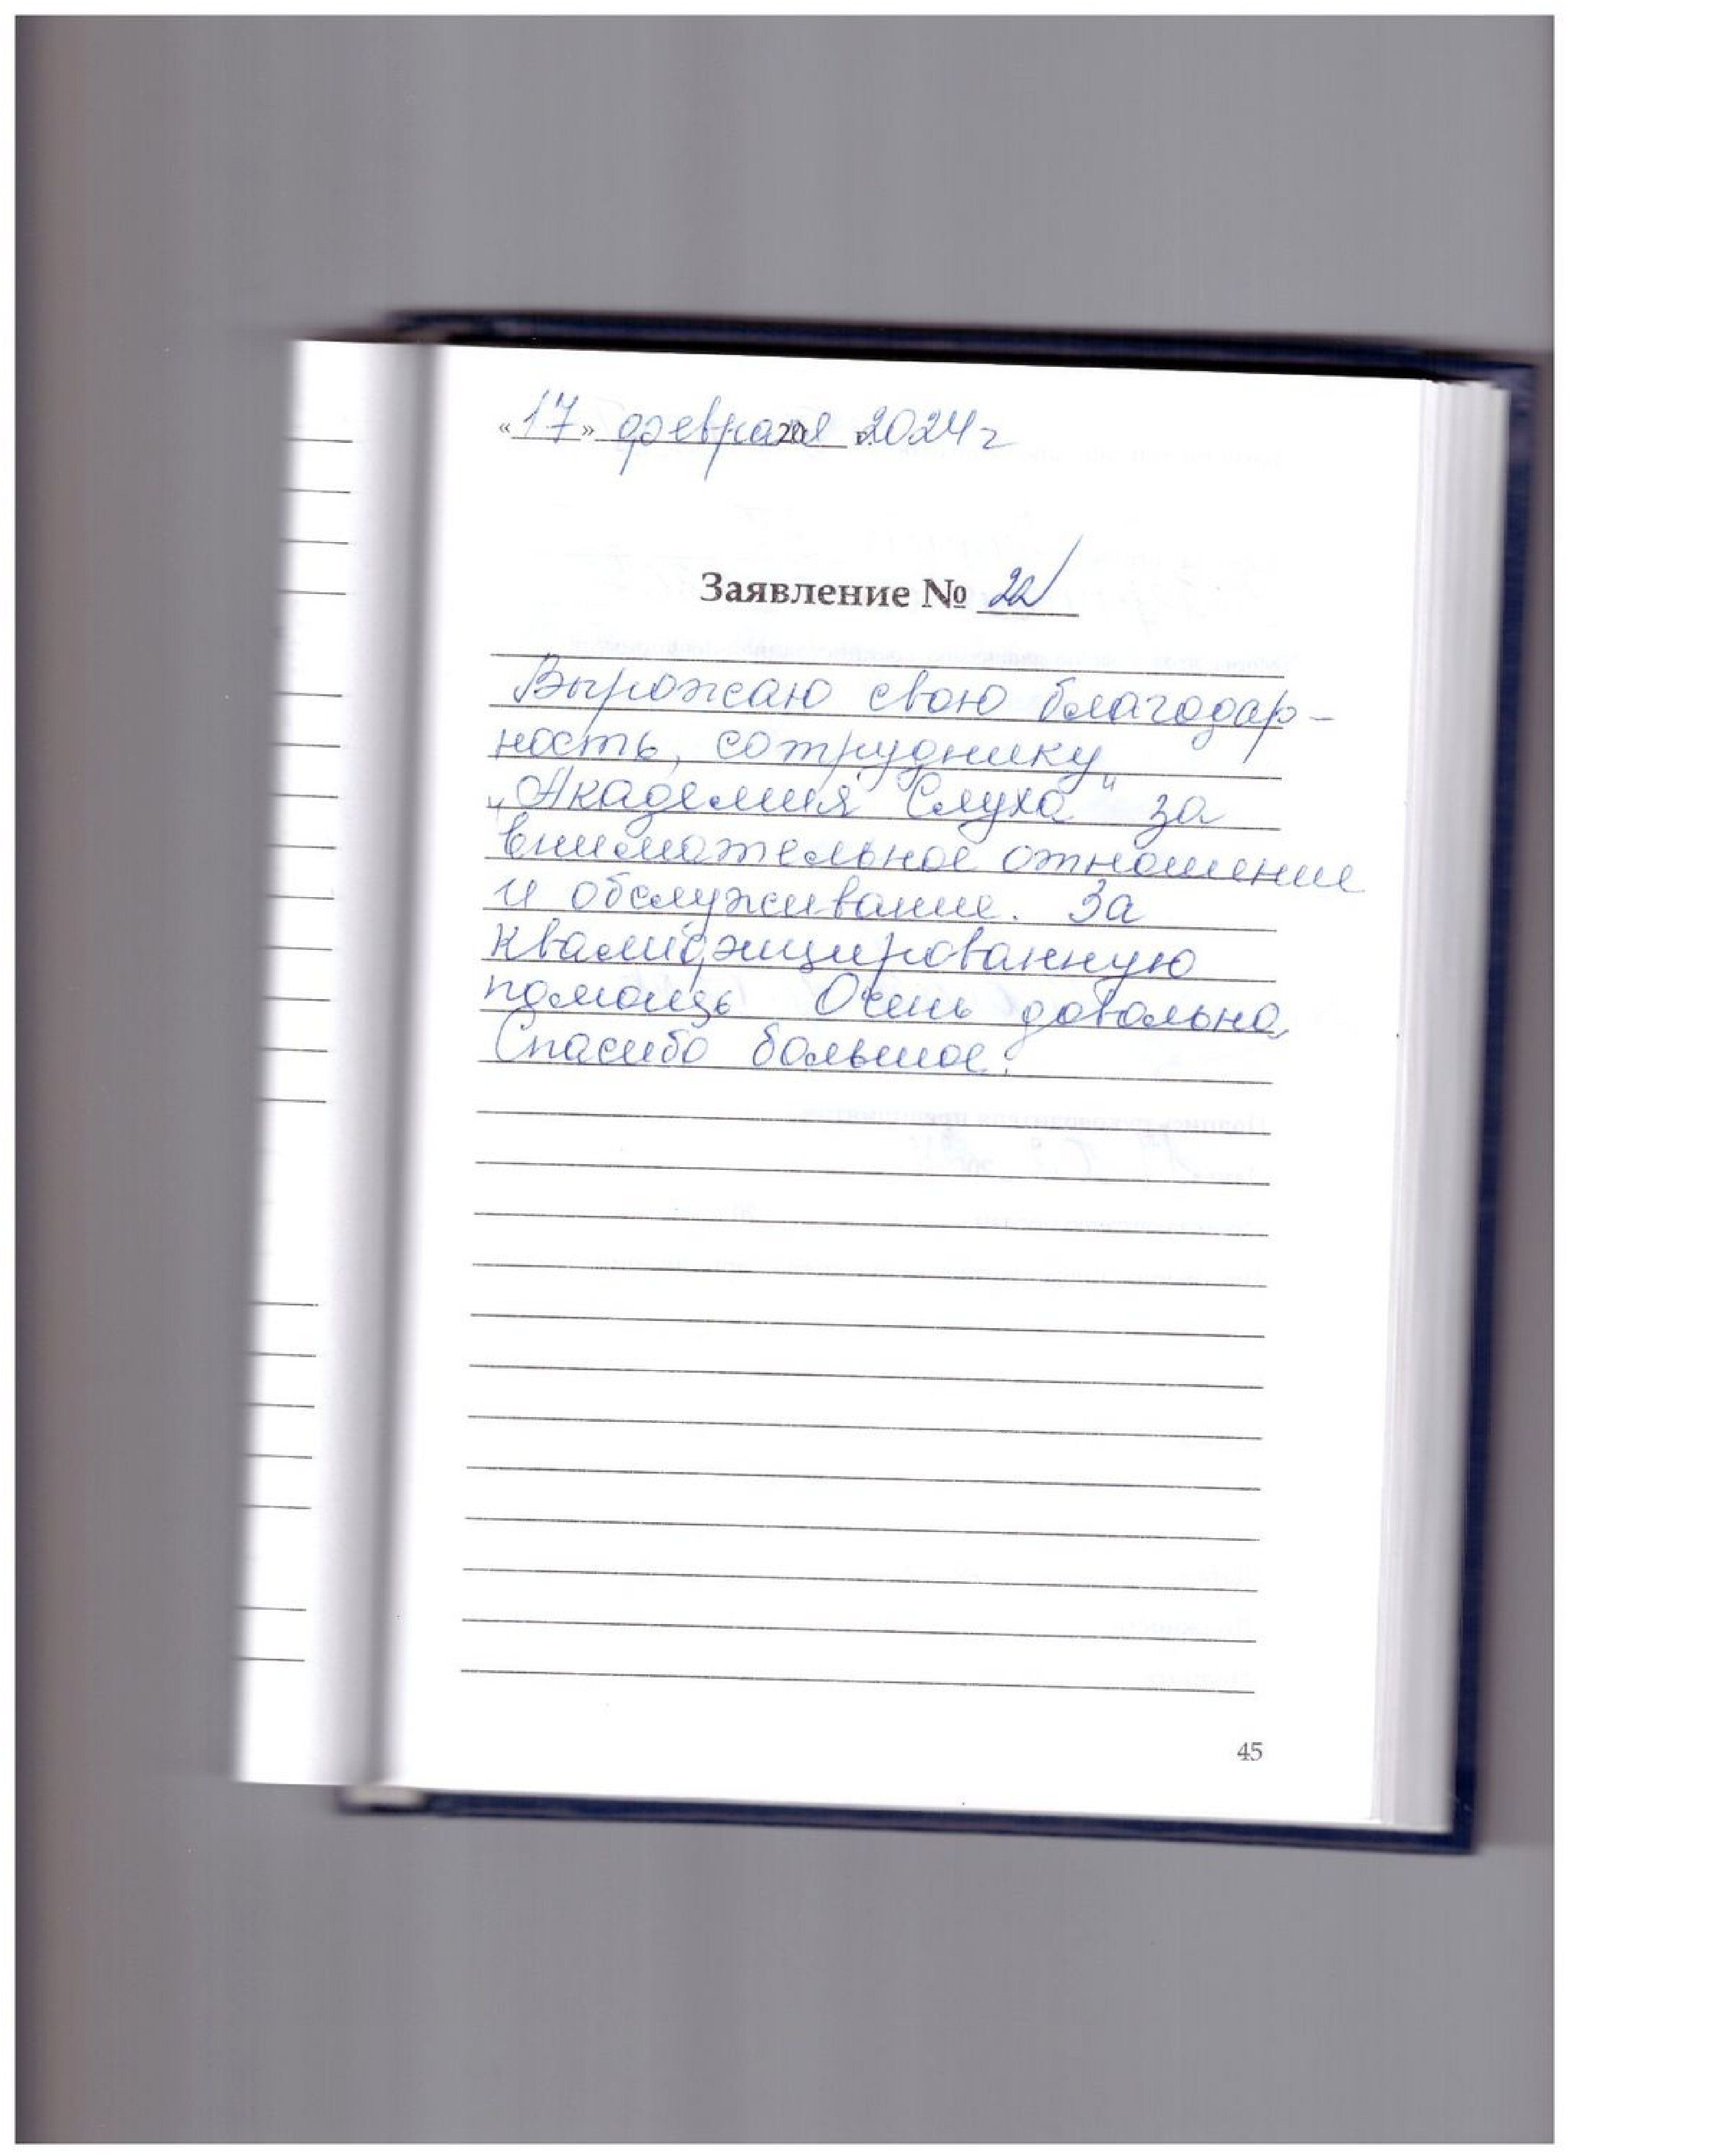 «17» февраля 2024г
Заявление № 22
Выражаю свою благодар-
ность, сотруднику
"Академия Слуха" за
внимательное отношение
и обслуживание. За
квалифицированную
помощь Очень довольна
Спасибо большое!
45